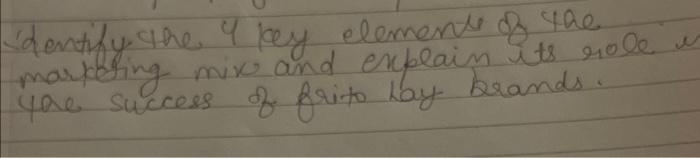 Identify the 4 key elements of the
marketing mix and explain its role in
the success of frito lay brands.